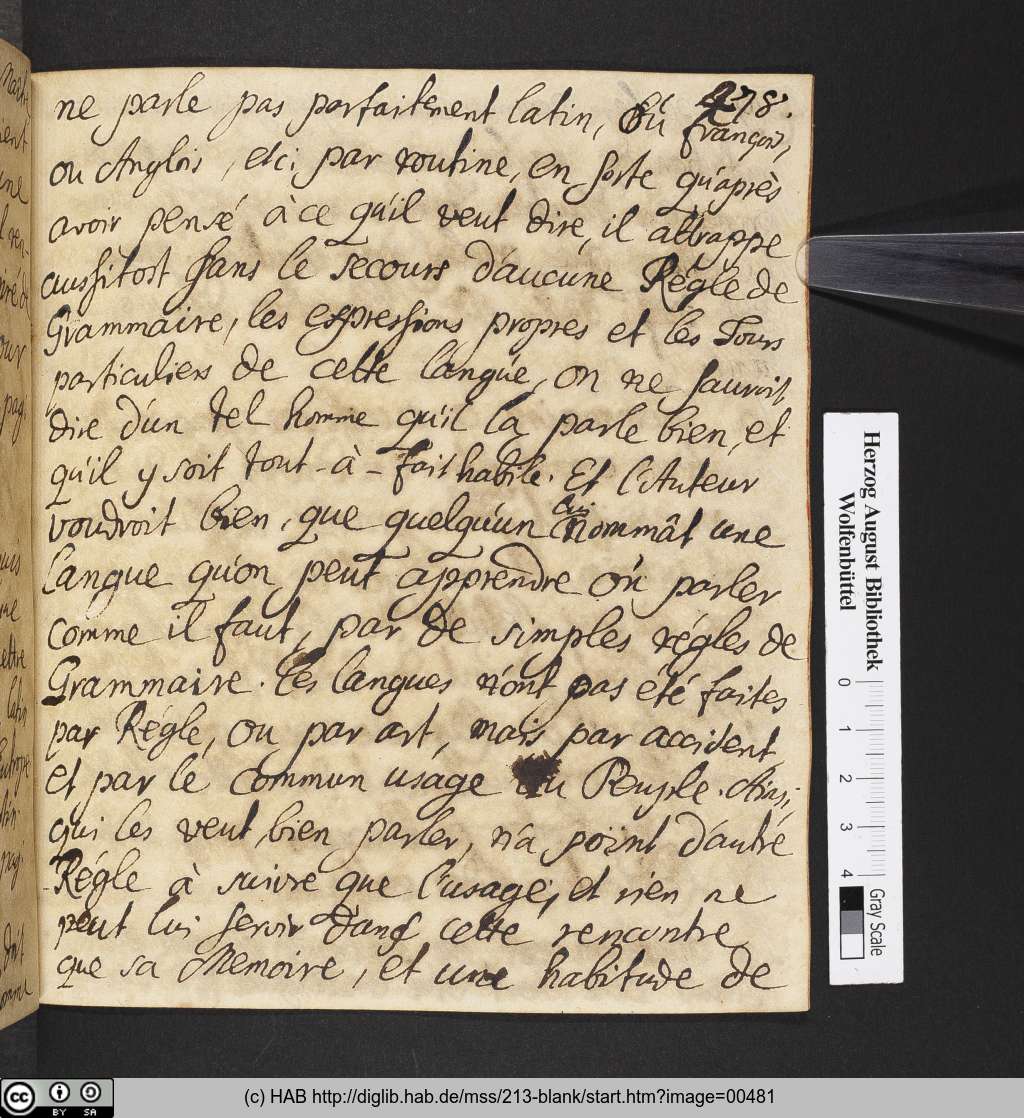 478.
ne parle pas parfaitement latin, ou françois,
ou Anglois, etc; par routine, en sorte qu'après
avoir pensé à ce qu'il veut dire, il attrappe
aussitost sans le secours d'aucune Régle de
Grammaire, les expressions propres et les Tours
particuliers de cette langue, on ne sauroit
dire d'un tel homme qu'il la parle bien, et
qu'il y soit tout-à-fait habile. Et l'Auteur
voudroit bien, que quelqu'un lui nommât une
langue qu'on peut apprendre ou parler
comme il faut, par de simples régles de
Grammaire. Les langues n'ont pas été faites
par Régle, ou par art, mais par accident
et par le commun usage du Peuple. Ainsi,
qui les veut bien parler, n'a point d'autre
Régle à suivre que l'usage, et rien ne
peut lui servir dans cette rencontre
que sa Memoire, et une habitude de
Herzog August Bibliothek
Wolfenbüttel
0 1 2 3 4
Gray Scale
cc BY SA
(c) HAB http://diglib.hab.de/mss/213-blank/start.htm?image=00481